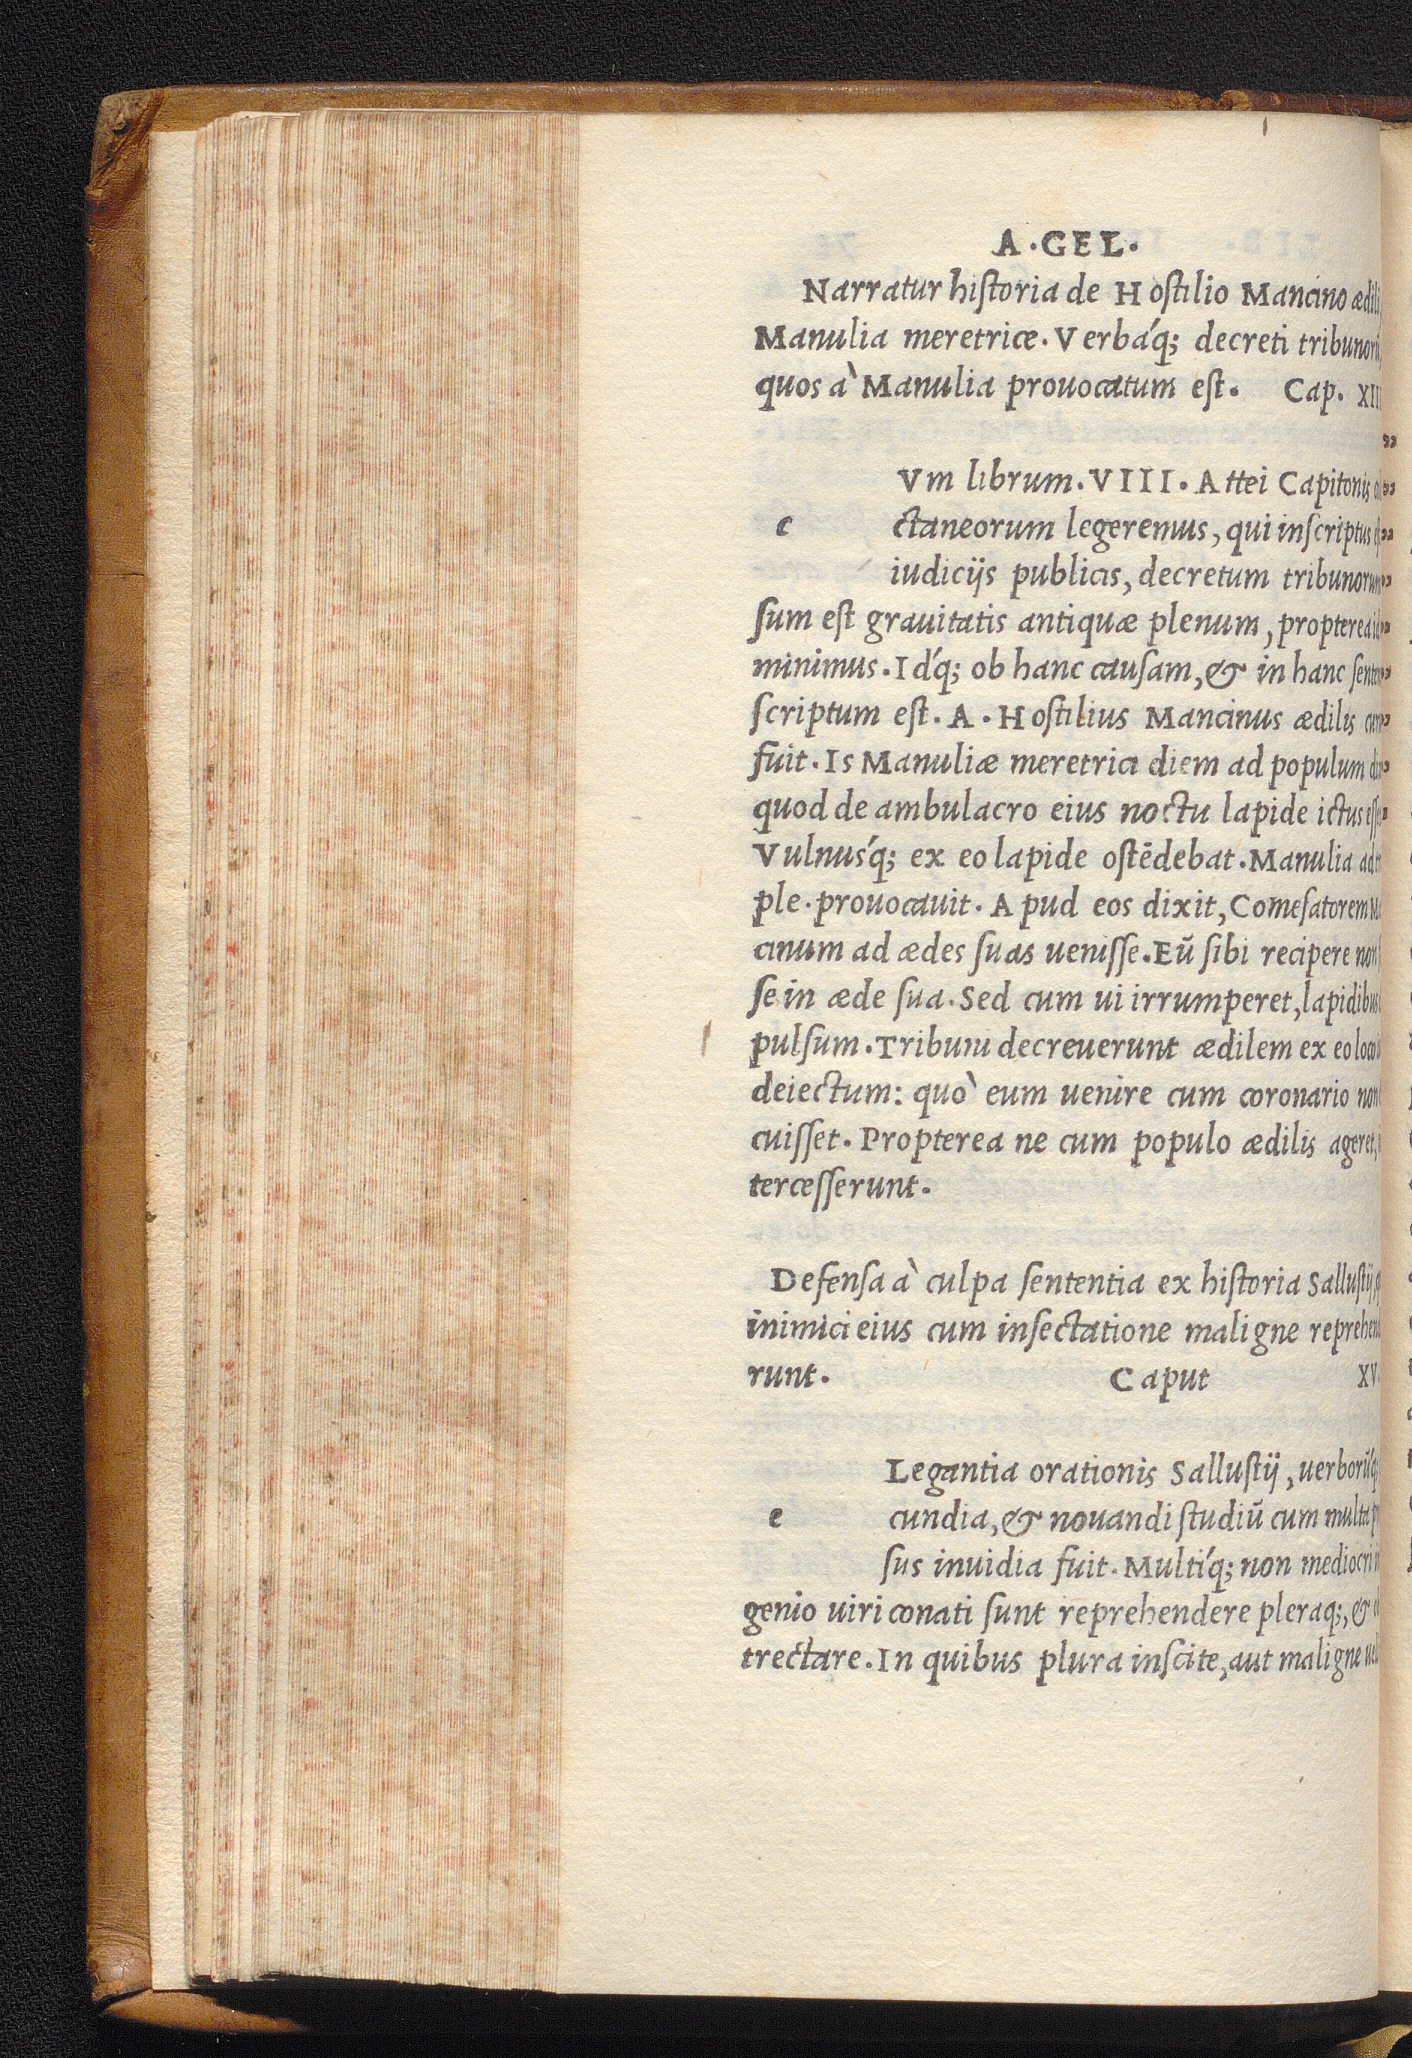 A·GEL.
Narratur historia de Hostilio Mancino ædili
Manulia meretrice. Verbáq; decreti tribunorũ,
quos à Manulia prouocatum est. Cap. XIII
Vm librum. VIII. Attei Capitonis
c ctaneorum legeremus, qui inscriptus
iudicijs publicis, decretum tribunorum
sum est grauitatis antiquæ plenum, propterea
minimus. Idq́; ob hanc causam, & in hanc
scriptum est. A. Hostilius Mancinus ædilis
fuit. Is Manuliæ meretrici diem ad populum
quod de ambulacro eius noctu lapide ictus
Vulnusq́; ex eo lapide ostēdebat. Manulia ad
ple. prouocauit. Apud eos dixit, Comesatorem
cinum ad ædes suas uenisse. Eũ sibi recipere non
se in æde sua. Sed cum ui irrumperet, lapidibus
pulsum. Tribuni decreuerunt ædilem ex eo loco
deiectum: quò eum uenire cum coronario non
cuisset. Propterea ne cum populo ædilis ageret,
tercesserunt.
Defensa à culpa sententia ex historia Sallustij,
inimici eius cum insectatione maligne
runt. Caput XV.
Legantia orationis Sallustij, uerborũq́;
e cundia, & nouandi studiũ cum multa
sus inuidia fuit. Multiq́; non mediocri
genio uiri conati sunt reprehendere pleraq;, &
trectare. In quibus plura inscite, aut maligne